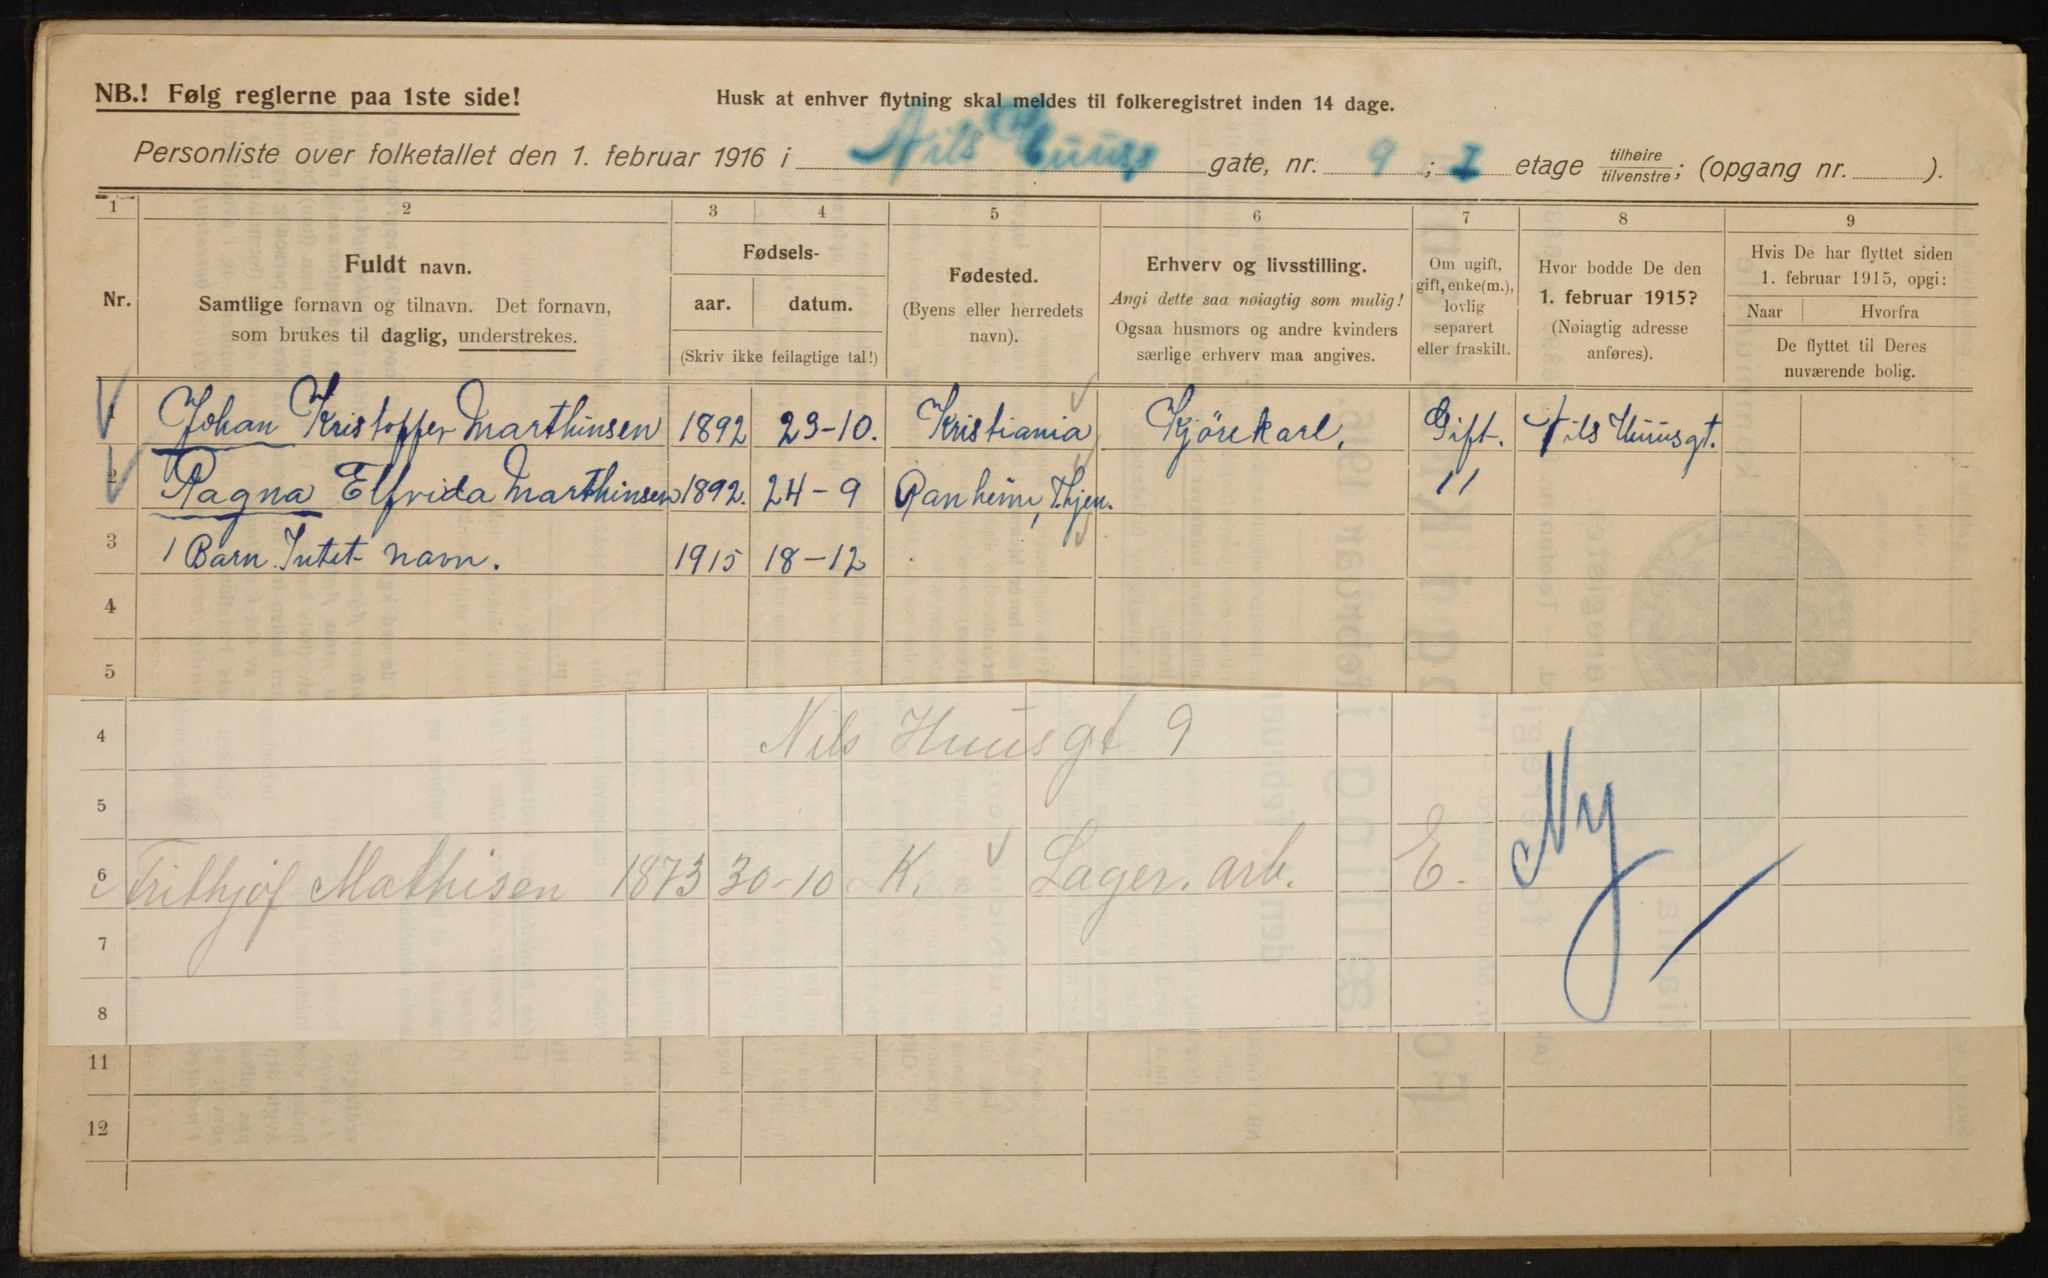 NB.! Følg reglerne paa 1ste side!
Husk at enhver flytning skal meldes til folkeregistret inden 14 dage.
Personliste over folketallet den 1. februar 1916 i Nils Huus gate, nr. 9 ; I etage tilhøire / tilvenstre; (opgang nr. ).
1 2 3 4 5 6 7 8 9
Nr.
Fuldt navn.
Samtlige fornavn og tilnavn. Det fornavn,
som brukes til daglig, understrekes.
Fødsels-
aar. datum.
(Skriv ikke feilagtige tal!)
Fødested.
(Byens eller herredets
navn).
Erhverv og livsstilling.
Angi dette saa nøiagtig som mulig!
Ogsaa husmors og andre kvinders
særlige erhverv maa angives.
Om ugift,
gift, enke(m.),
lovlig
separert
eller fraskilt.
Hvor bodde De den
1. februar 1915?
(Nøiagtig adresse
anføres).
Hvis De har flyttet siden
1. februar 1915, opgi:
Naar Hvorfra
De flyttet til Deres
nuværende bolig.
1 Johan Kristoffer Marthinsen 1892 23-10. Kristiania Kjörekarl. Gift. Nils Huusgt.
2 Ragna Elfrida Marthinsen 1892. 24-9 Ranheim, Thjen. "
3 1 Barn. Intet navn. 1915 18-12
4
5
4 Nils Huusgt 9
5
6 Frithjof Mathisen 1873 30-10 K. Lager. arb. E. Ny
7
8
11
12